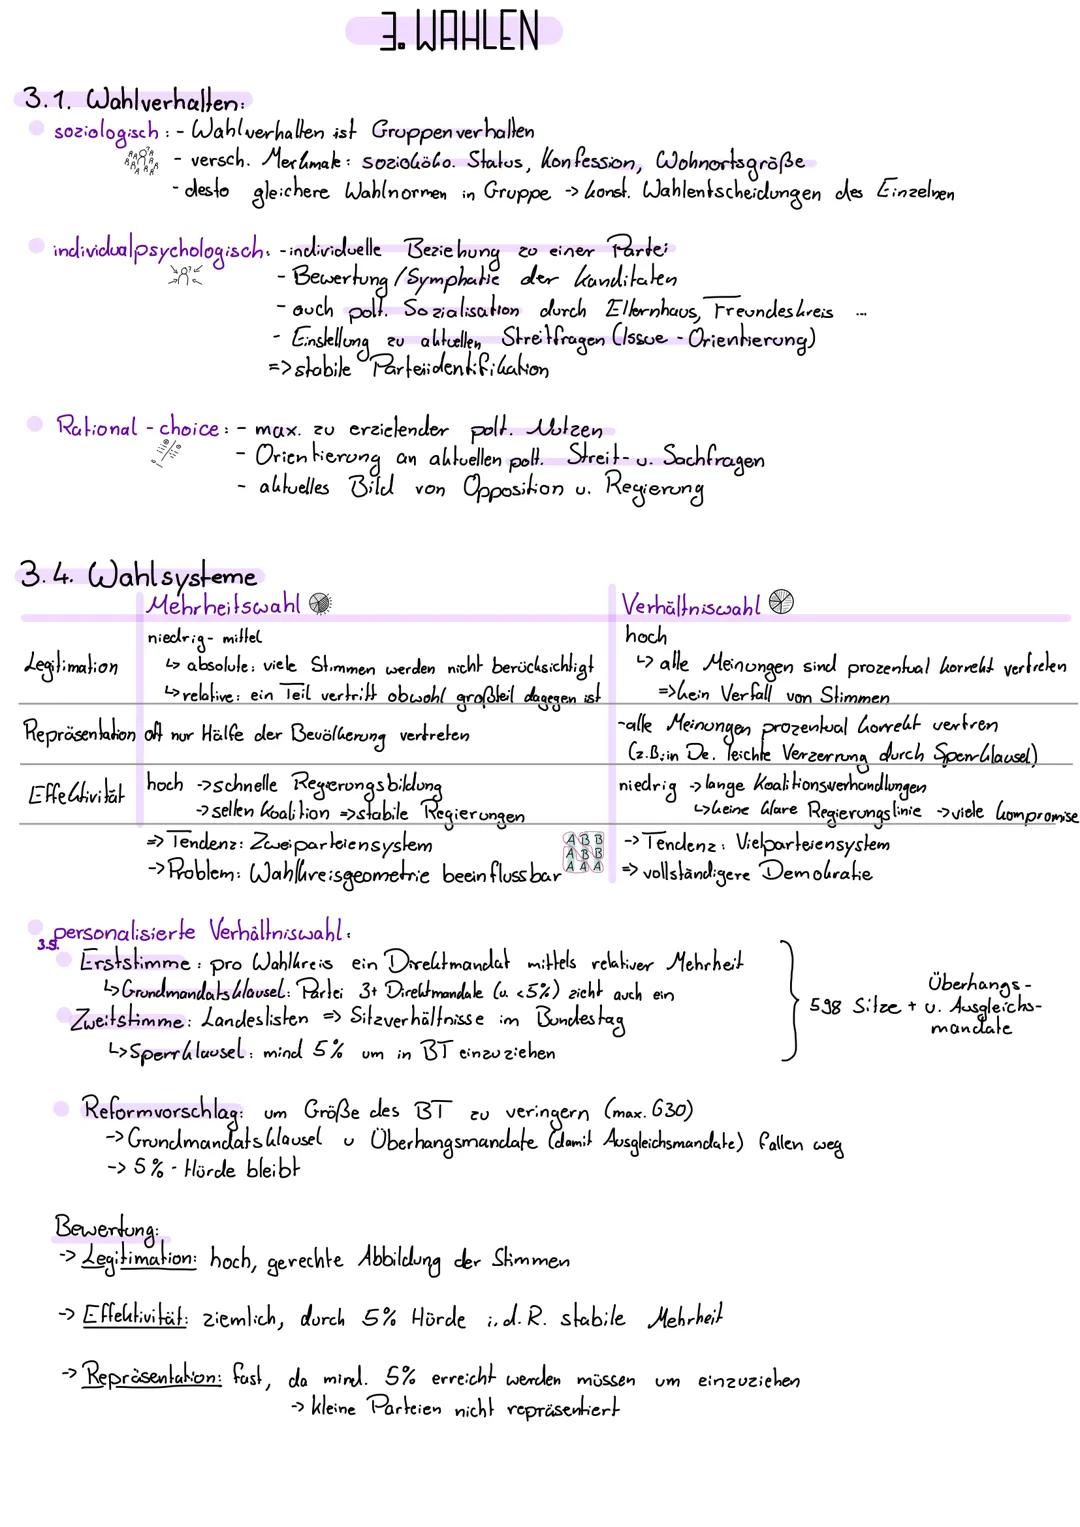 3. WAHLEN
3.1. Wahlverhalten:
soziologisch: - Wahlverhalten ist Gruppenverhalten
- versch. Merkmale: sozioöko. Status, Konfession, Wohnortsgröße
- desto gleichere Wahlnormen in Gruppe -> konst. Wahlentscheidungen des Einzelnen
individualpsychologisch: - individuelle Beziehung zu einer Partei
- Bewertung / Symphatie der Kanditaten
- auch polt. Sozialisation durch Elternhaus, Freundeskreis ...
- Einstellung zu aktuellen Streitfragen (Issue - Orientierung)
=> stabile Parteiidentifikation
Rational - choice: - max. zu erzielender polt. Nutzen
- Orientierung an aktuellen polt. Streit- u. Sachfragen
- aktuelles Bild von Opposition u. Regierung
3.4. Wahlsysteme
Mehrheitswahl Verhältniswahl
niedrig - mittel hoch
Legitimation ↳ absolute: viele Stimmen werden nicht berücksichtigt ↳ alle Meinungen sind prozentual korrekt vertreten
↳ relative: ein Teil vertritt obwohl großteil dagegen ist => kein Verfall von Stimmen
Repräsentation oft nur Hälfte der Bevölkerung vertreten - alle Meinungen prozentual korrekt vertren
(z.B. in De. leichte Verzerrung durch Sperrklausel)
Effektivität hoch -> schnelle Regierungsbildung niedrig -> lange Koalitionsverhandlungen
-> selten Koalition => stabile Regierungen ↳ keine klare Regierungslinie -> viele kompromise
=> Tendenz: Zweiparteiensystem -> Tendenz: Vielparteiensystem
-> Problem: Wahlkreisgeometrie beeinflussbar => vollständigere Demokratie
A B B
A B B
A A A
3.5. personalisierte Verhältniswahl:
Erststimme: pro Wahlkreis ein Direktmandat mittels relativer Mehrheit
↳ Grundmandatsklausel: Partei 3+ Direktmandate (u. <5%) zieht auch ein
Zweitstimme: Landeslisten => Sitzverhältnisse im Bundestag
↳ Sperrklausel: mind 5% um in BT einzuziehen
598 Sitze + Überhangs- u. Ausgleichs-
mandate
Reformvorschlag: um Größe des BT zu veringern (max. 630)
-> Grundmandatsklausel u Überhangsmandate (damit Ausgleichsmandate) fallen weg
-> 5% - Hürde bleibt
Bewertung:
-> Legitimation: hoch, gerechte Abbildung der Stimmen
-> Effektivität: ziemlich, durch 5% Hürde i.d.R. stabile Mehrheit
-> Repräsentation: fast, da mind. 5% erreicht werden müssen um einzuziehen
-> kleine Parteien nicht repräsentiert